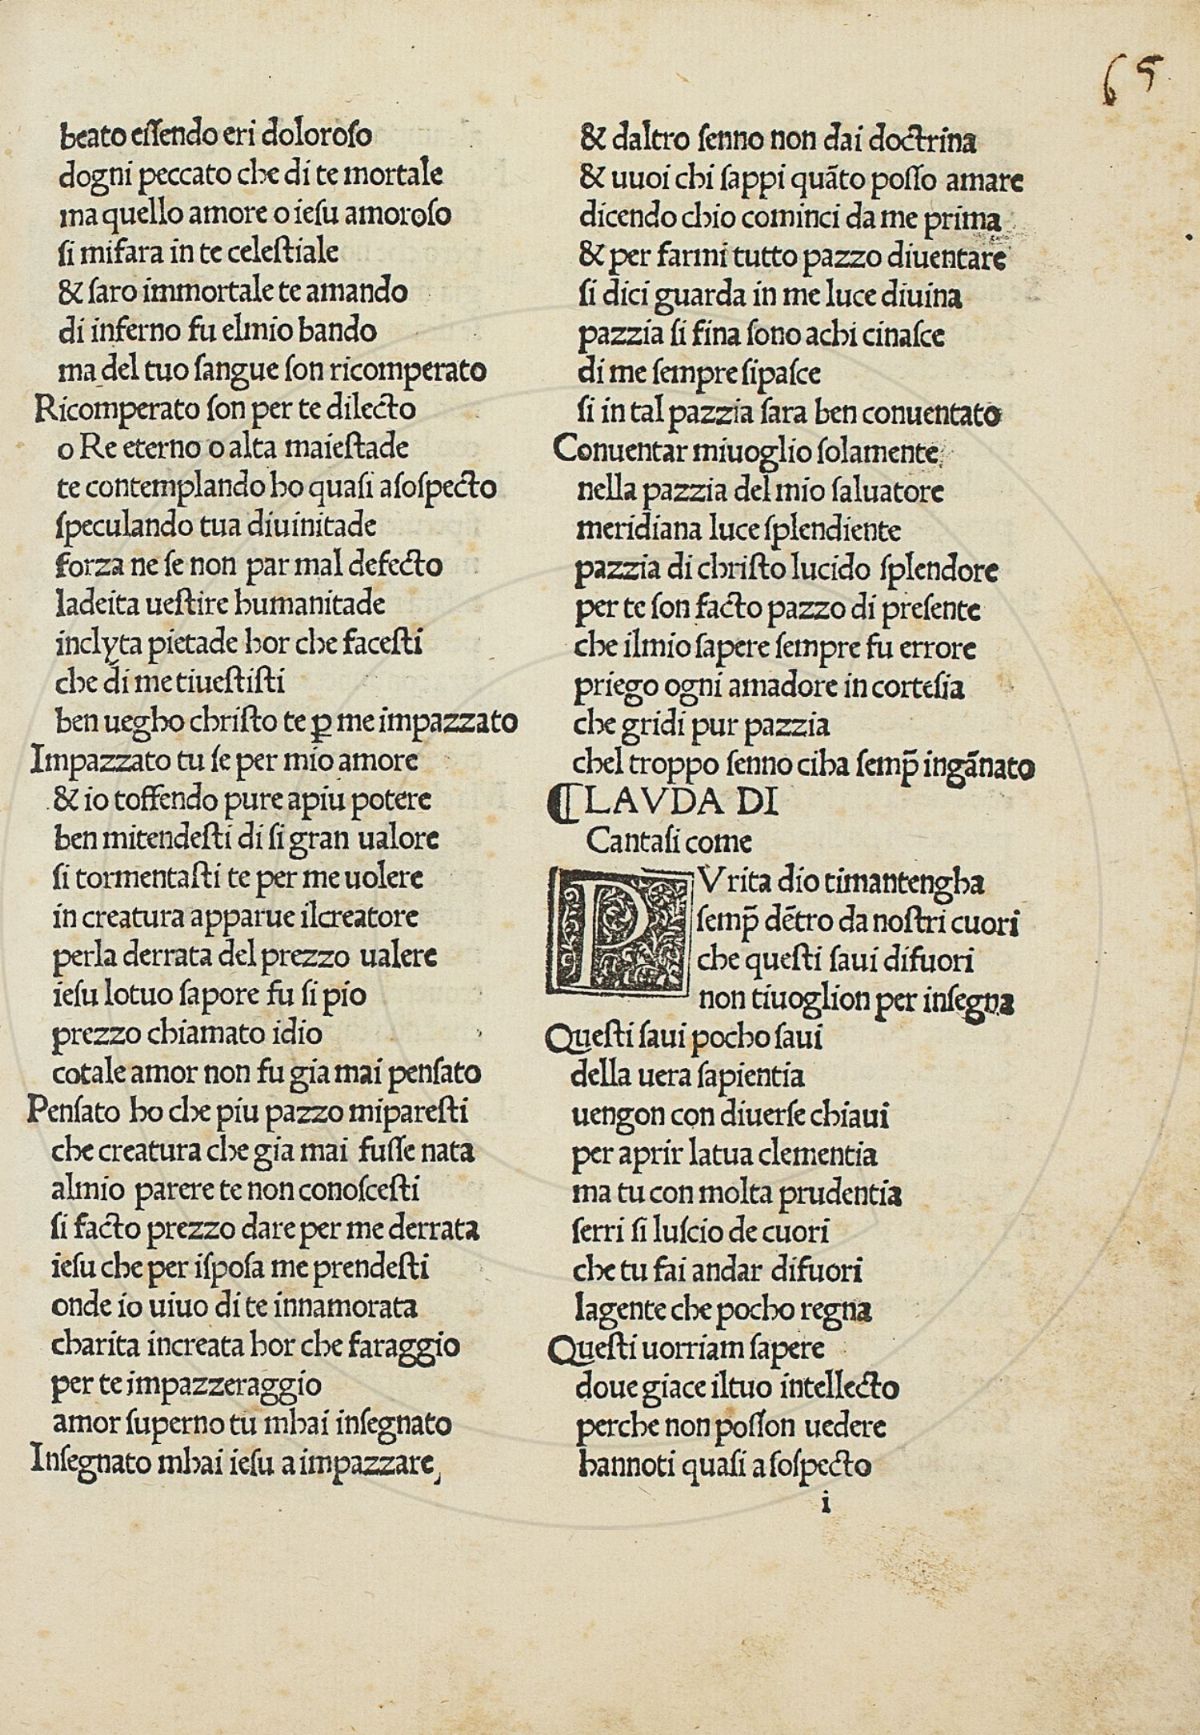 65
beato eſſendo eri doloroſo
dogni peccato che di te mortale
ma quello amore o ieſu amoroſo
ſi mifara in te celeſtiale
& ſaro immortale te amando
di inferno fu elmio bando
ma del tuo ſangue ſon ricomperato
Ricomperato ſon per te dilecto
o Re eterno o alta maieſtade
te contemplando ho quaſi aſoſpecto
ſpeculando tua diuinitade
forza ne ſe non par mal defecto
ladeita ueſtire humanitade
inclyta pietade hor che faceſti
che di me tiueſtiſti
ben uegho chriſto te ꝑ me impazzato
Impazzato tu ſe per mio amore
& io toffendo pure apiu potere
ben mitendeſti di ſi gran ualore
ſi tormentaſti te per me uolere
in creatura apparue ilcreatore
perla derrata del prezzo ualere
ieſu lotuo ſapore fu ſi pio
prezzo chiamato idio
cotale amor non fu gia mai penſato
Penſato ho che piu pazzo mipareſti
che creatura che gia mai fuſſe nata
almio parere te non conoſceſti
ſi facto prezzo dare per me derrata
ieſu che per iſpoſa me prendeſti
onde io uiuo di te innamorata
charita increata hor che faraggio
per te impazzeraggio
amor ſuperno tu mhai inſegnato
Inſegnato mhai ieſu a impazzare
& daltro ſenno non dai doctrina
& uuoi chi ſappi quãto poſſo amare
dicendo chio cominci da me prima
& per farmi tutto pazzo diuentare
ſi dici guarda in me luce diuina
pazzia ſi fina ſono achi cinaſce
di me ſempre ſipaſce
ſi in tal pazzia ſara ben conuentato
Conuentar miuoglio ſolamente
nella pazzia del mio ſaluatore
meridiana luce ſplendiente
pazzia di chriſto lucido ſplendore
per te ſon facto pazzo di preſente
che ilmio ſapere ſempre fu errore
priego ogni amadore in corteſia
che gridi pur pazzia
chel troppo ſenno ciha ſemp̃ ingãnato
¶LAVDA DI
Cantaſi come
PVrita dio timantengha
ſemp̃ dẽtro da noſtri cuori
che queſti ſaui difuori
non tiuoglion per inſegna
Queſti ſaui pocho ſaui
della uera ſapientia
uengon con diuerſe chiaui
per aprir latua clementia
ma tu con molta prudentia
ſerri ſi luſcio de cuori
che tu fai andar difuori
lagente che pocho regna
Queſti uorriam ſapere
doue giace iltuo intellecto
perche non poſſon uedere
hannoti quaſi a ſoſpecto
i